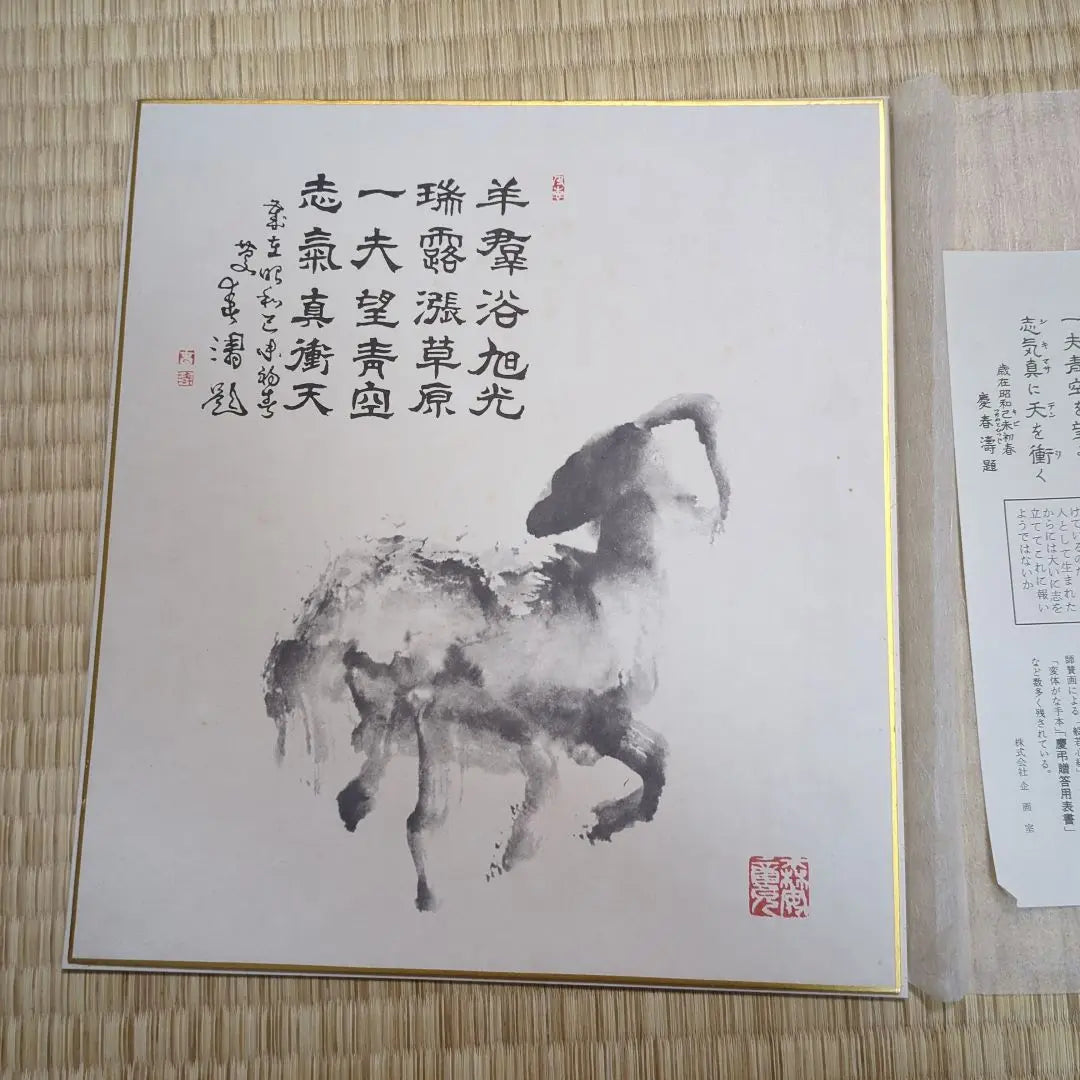 羊羣浴旭光
瑞露漲草原
一夫望青空
志氣真衝天
歳在昭和己未初春
慶春濤題
志気真に天を衝く
シキマサ
テン
歳在昭和己未初春
慶春濤題
人として生まれた
からには大いに志を
立ててこれに報い
ようではないか
「変体がな手本」「慶弔贈答用表書」
など数多く残されている。
株式会社企画室